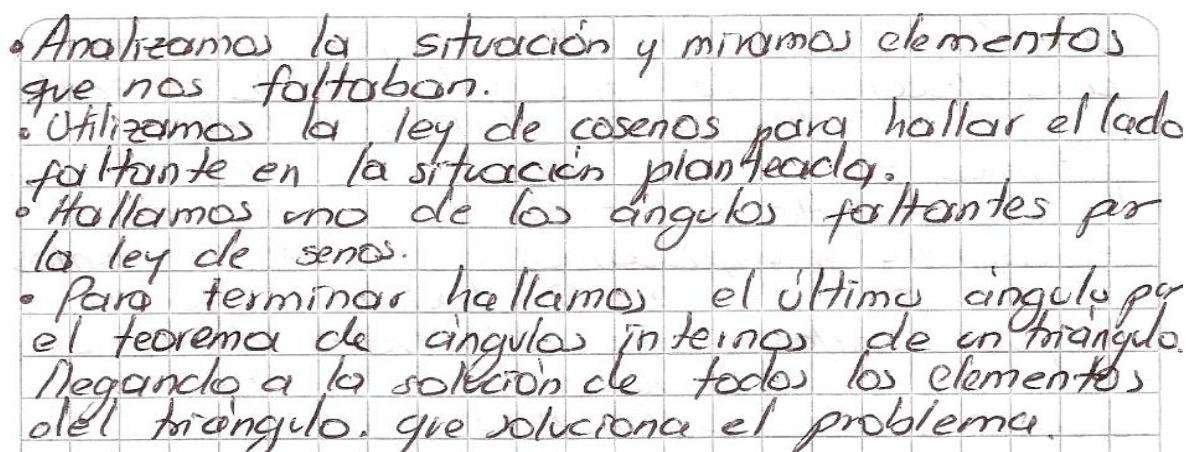 • Analizamos la situación y miramos elementos
que nos faltaban.
• Utilizamos la ley de cosenos para hallar el lado
faltante en la situación planteada.
• Hallamos uno de los ángulos faltantes por
la ley de senos.
• Para terminar hallamos el último ángulo por
el teorema de ángulos internos de un triángulo.
llegando a la solución de todos los elementos
del triángulo. que soluciona el problema.